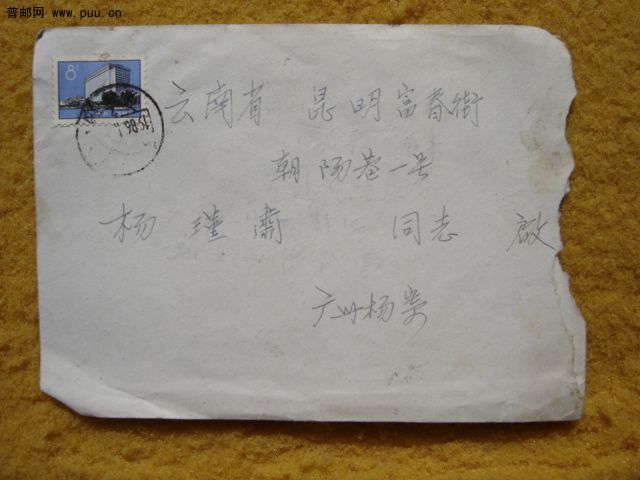 普邮网 www.puu.cn
8
云南省 昆明富春街
朝阳巷一号
杨瑾肃 同志 啟
广州杨寄